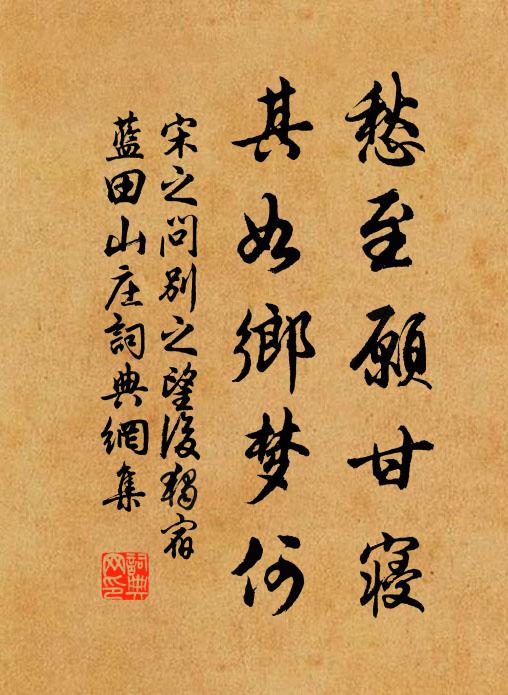 愁至願甘寝
其如鄉梦何
宋之问别之望後獨宿
藍田山庄詞典網集
詞典
网印